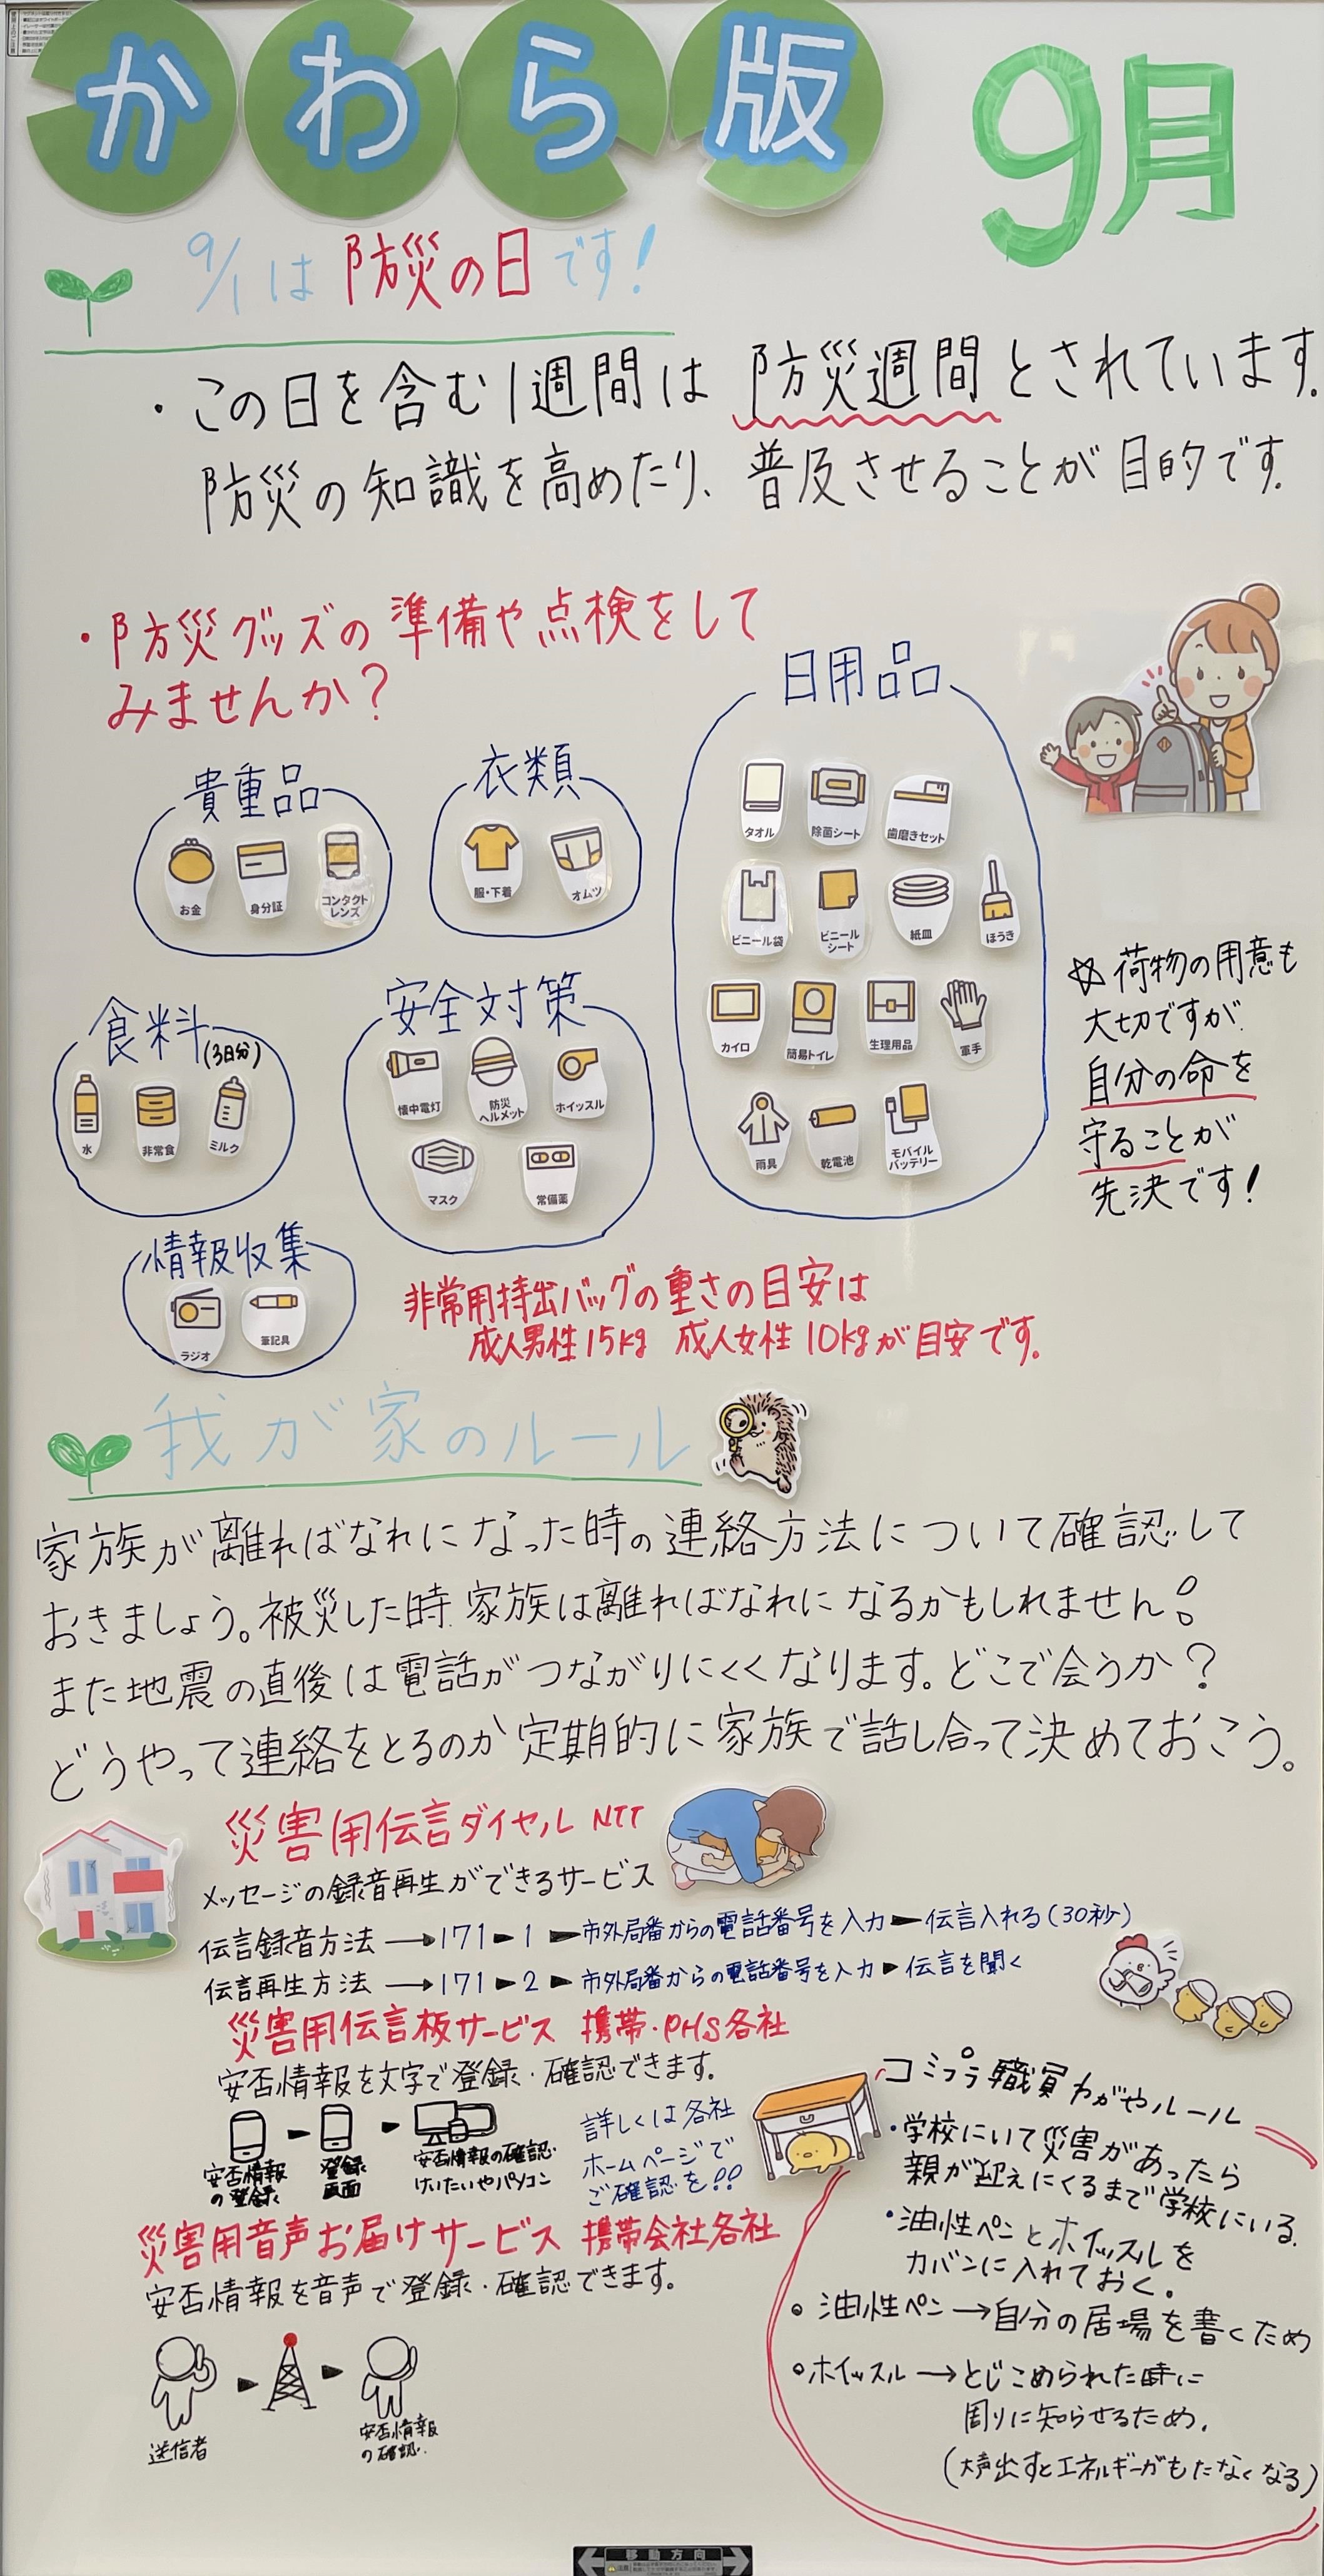 かわら版 9月
9/1は防災の日です!
・この日を含む1週間は防災週間とされています。
防災の知識を高めたり、普及させることが目的です。
・防災グッズの準備や点検をして
みませんか?
貴重品
お金
身分証
コンタクト
レンズ
衣類
服・下着
オムツ
日用品
タオル
除菌シート
歯磨きセット
ビニール袋
ビニール
シート
紙皿
ほうき
カイロ
簡易トイレ
生理用品
軍手
雨具
乾電池
モバイル
バッテリー
食料(3日分)
水
非常食
ミルク
安全対策
懐中電灯
防災
ヘルメット
ホイッスル
マスク
常備薬
☆荷物の用意も
大切ですが
自分の命を
守ることが
先決です!
情報収集
ラジオ
筆記具
非常用持出バッグの重さの目安は
成人男性15kg 成人女性10kgが目安です。
我が家のルール
家族が離ればなれになった時の連絡方法について確認して
おきましょう。被災した時家族は離ればなれになるかもしれません!
また地震の直後は電話がつながりにくくなります。どこで会うか?
どうやって連絡をとるのか定期的に家族で話し合って決めておこう。
災害用伝言ダイヤル NTT
メッセージの録音再生ができるサービス
伝言録音方法→171►1►市外局番からの電話番号を入力►伝言入れる(30秒)
伝言再生方法→171►2►市外局番からの電話番号を入力►伝言を聞く
災害用伝言板サービス 携帯・PHS各社
安否情報を文字で登録・確認できます。
安否情報
の登録
登録
画面
安否情報の確認
けいたいやパソコン
詳しくは各社
ホームページで
ご確認を!!
災害用音声お届けサービス 携帯会社各社
安否情報を音声で登録・確認できます。
送信者
安否情報
の確認
コミプラ職員わがやルール
・学校にいて災害があったら
親が迎えにくるまで学校にいる。
・油性ペンとホイッスルを
カバンに入れておく。
油性ペン→自分の居場を書くため
ホイッスル→とじこめられた時に
周りに知らせるため。
(大声出すとエネルギーがもたなくなる)
移動方向